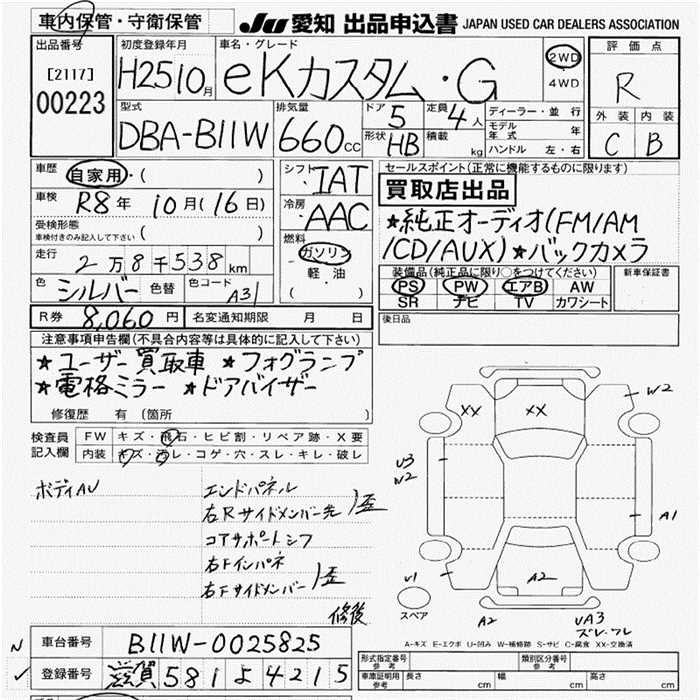 車内保管・守衛保管
JU 愛知 出品申込書 JAPAN USED CAR DEALERS ASSOCIATION
出品番号
[2117]
00223
初度登録年月
H25 10月
車名・グレード
eKカスタム・G
2WD
4WD
評価点
R
外装 内装
C B
型式
DBA-B11W
排気量
660cc
ドア 5
形状 HB
定員 4人
積載 kg
ディーラー・並行
モデル年式 年
ハンドル 左・右
車歴 自家用・( )
車検 R8年 10月(16日)
受検形態
車検付きのみ記入して下さい ( )
走行 2万8千538km
色 シルバー 色替 色コード A31
シフト IAT
冷房 AAC
燃料
ガソリン
・
軽油
( )
セールスポイント(正常に機能するものに限ります)
買取店出品
★純正オーディオ(FM/AM
/CD/AUX)★バックカメラ
装備品(純正品に限り○をつけてください)
PS PW エアB AW
SR ナビ TV カワシート
新車保証書
R券 8,060円 名変通知期限 月 日
後日品
注意事項申告欄(不具合内容等は具体的に記入して下さい)
★ユーザー買取車 ★フォグランプ
★電格ミラー ★ドアバイザー
修復歴 有(箇所 )
検査員
記入欄
FW キズ・飛石・ヒビ割・リペア跡・X要
内装 キズ・汚レ・コゲ・穴・スレ・キレ・破レ
ボディAU
エンドパネル
右Rサイドメンバー先 歪
コアサポートシフ
右Fインパネ
右Fサイドメンバー 歪
修後
XX XX W2
U3
W2
A1
U1
A2
スペア
A2
UA3
ズレ、ワレ
A-キズ E-エクボ U-凹み W-補修跡 S-サビ C-腐食 XX-交換済
N 車台番号 B11W-0025825
✓ 登録番号 滋賀 581 よ 4215
形式指定番号
参考
類別区分番号
参考
車庫証明用
参考
長さ cm 幅 cm 高さ cm